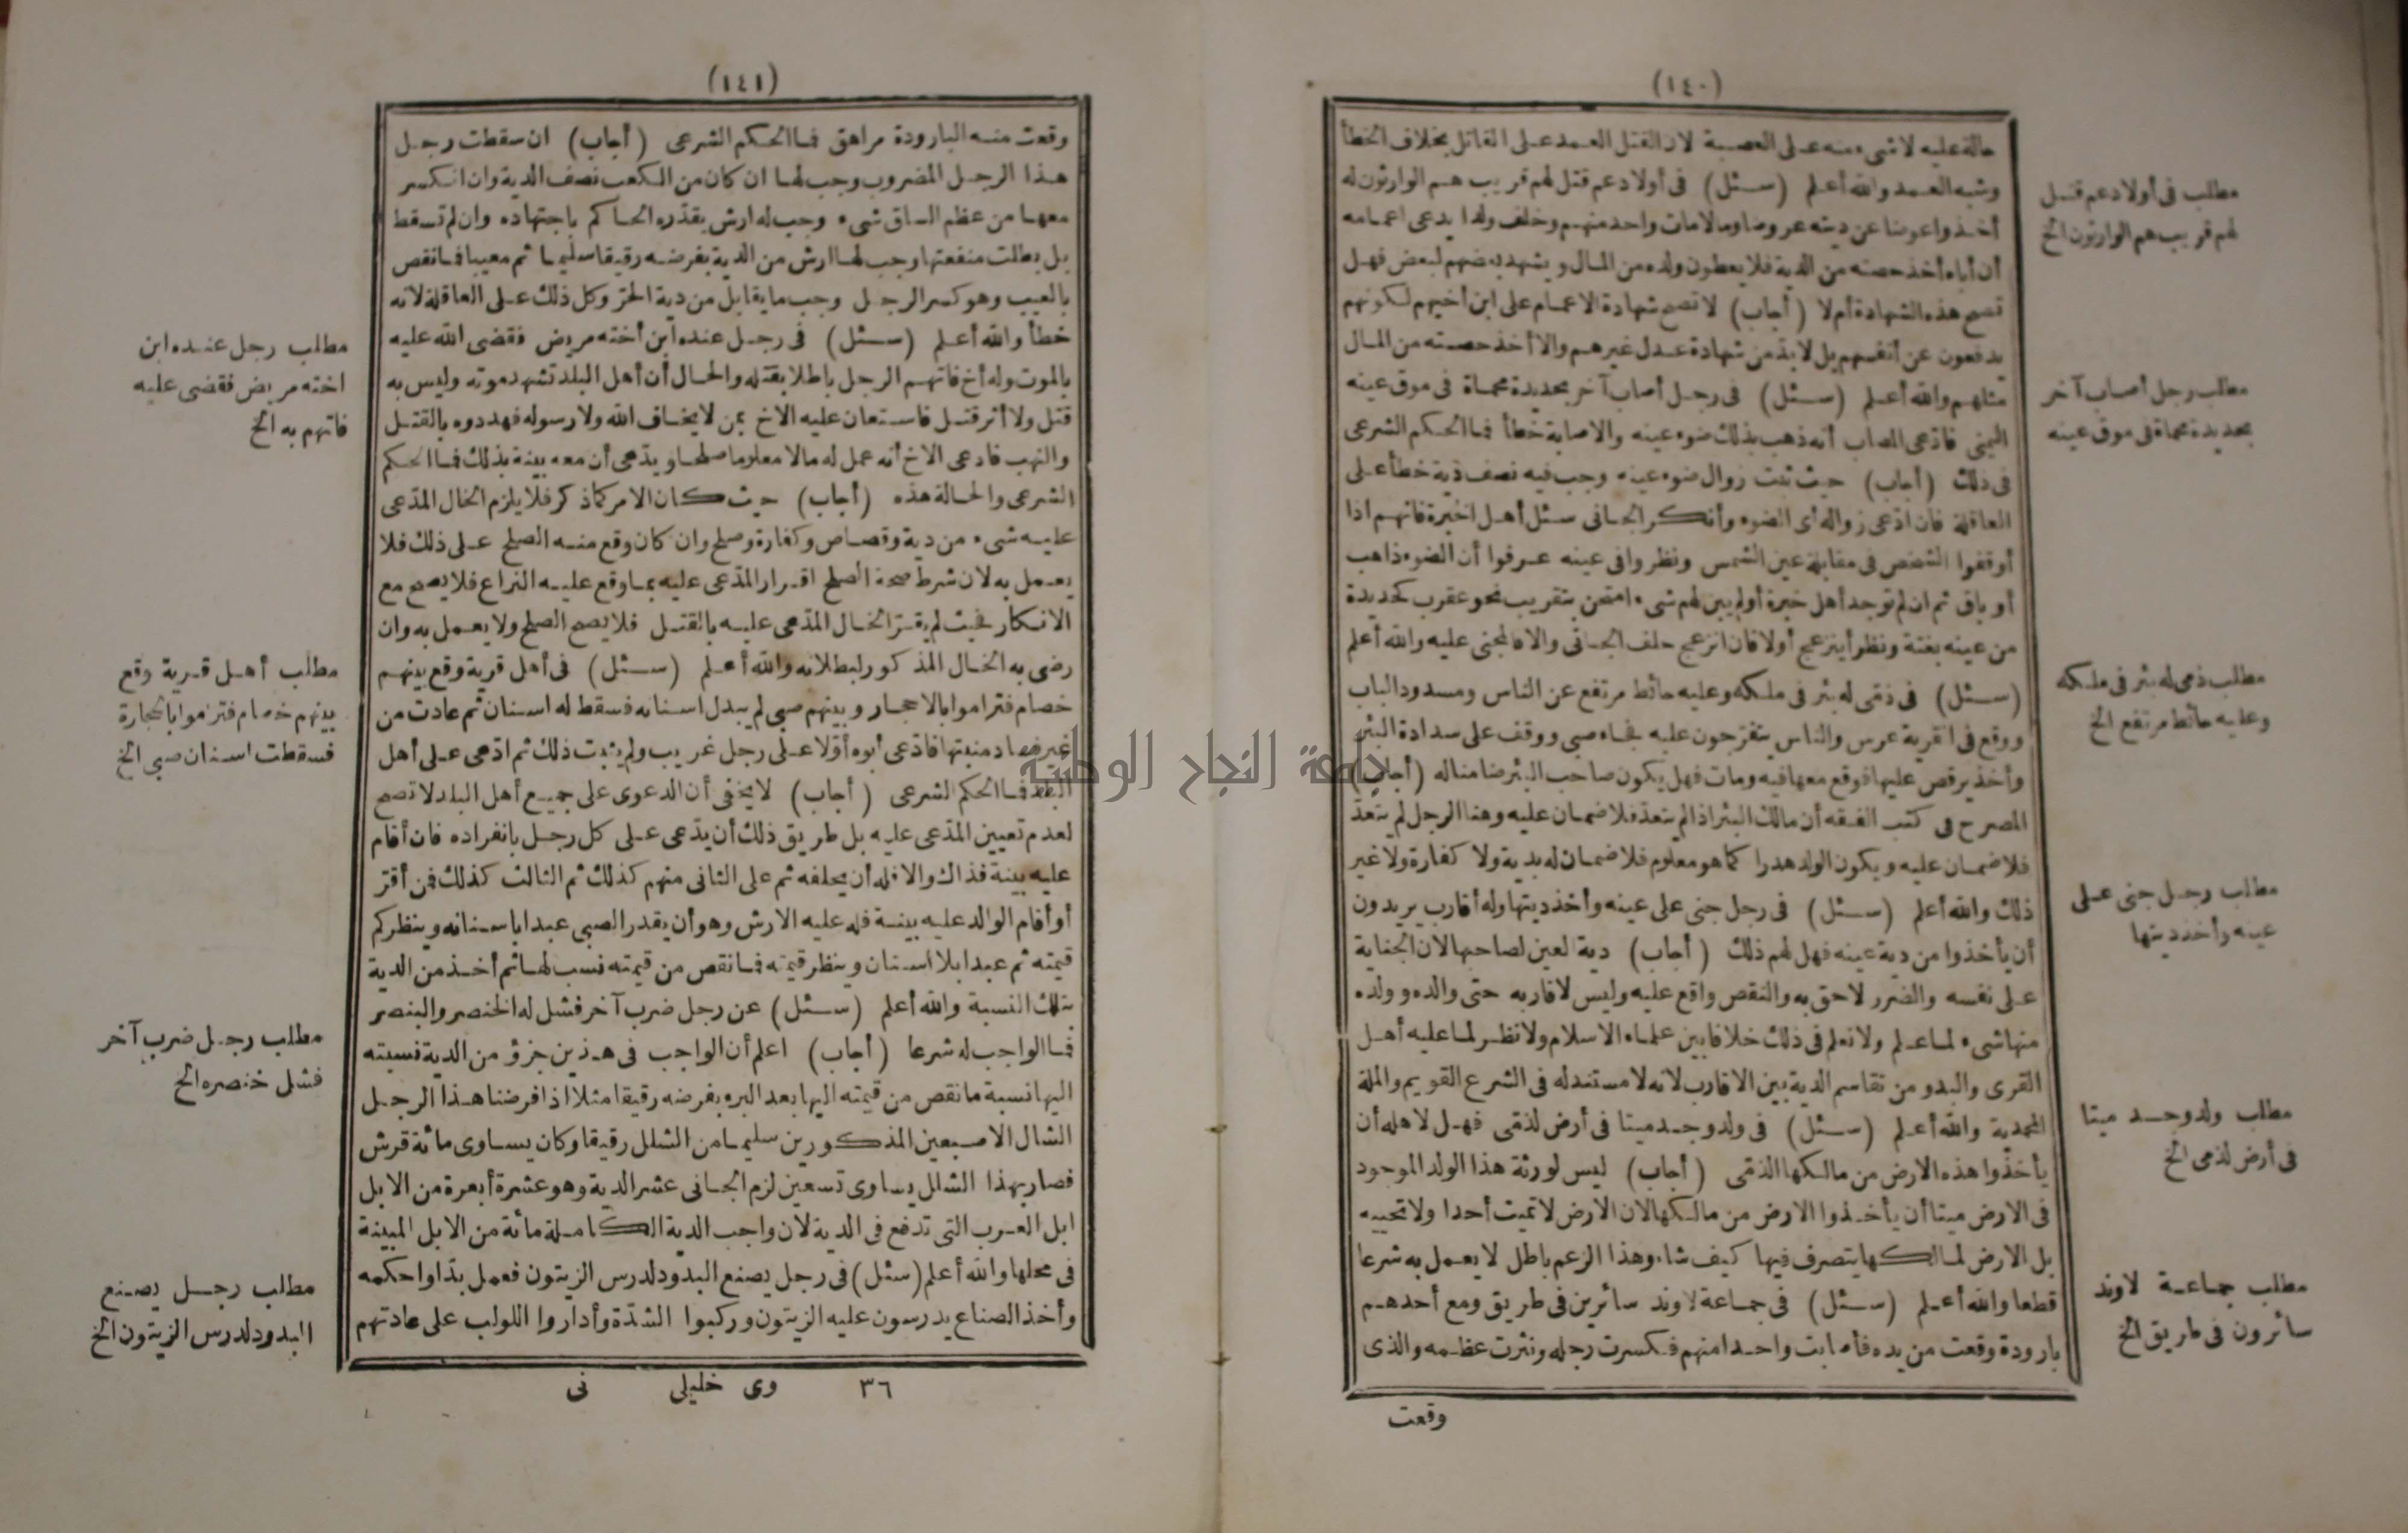 (١٤٠)
حالة عليه لا شيء منه على العصبة لان القتل العمد على القاتل بخلاف الخطأ
وشبه العمد والله أعلم (سئل) فى أولاد عم قتل لهم قريب هم الوارثون له
أخذوا عوضا عن ديته عروضا ومالا مات واحد منهم وخلف ولدا يدعى اعمامه
أن أباه أخذ حصته من الدية فلا يعطون ولده من المال ويشهد بعضهم لبعض فهل
تصح هذه الشهادة أم لا (أجاب) لا تصح شهادة الاعمام على ابن أخيهم لكونهم
يدفعون عن أنفسهم بل لا بد من شهادة عدل غيرهم والا أخذ حصته من المال
مثلهم والله أعلم (سئل) فى رجل أصاب آخر بحديدة محماة فى موق عينه
اليمنى فادعى المصاب أنه ذهب بذلك ضوء عينه والاصابة خطأ فما الحكم الشرعى
فى ذلك (أجاب) حيث ثبت زوال ضوء عينه وجب فيه نصف دية خطأ على
العاقلة فان ادّعى زواله أى الضوء وأنكر الجانى سئل أهل الخبرة فانهم اذا
أوقفوا الشخص فى مقابلة عين الشمس ونظروا فى عينه عرفوا أن الضوء ذاهب
أو باق ثم ان لم توجد أهل خبرة أو لم يبن لهم شيء امتحن بتقريب نحو عقرب كحديدة
من عينه بغتة ونظر أينزعج أولا فان انزعج حلف الجانى والا فالمجنى عليه والله أعلم
(سئل) فى ذمّى له بئر فى ملكه وعليه حائط مرتفع عن الناس ومسدود الباب
ووقع فى القرية عرس والناس يتفرّجون عليه فجاء صبى ووقف على سدادة البئر
وأخذ يرقص عليها فوقع معها فيه ومات فهل يكون صاحب البئر ضامنا له (أجاب)
المصرح فى كتب الفقه أن مالك البئر اذا لم يتعد فلا ضمان عليه وهنا الرجل لم يتعدّ
فلا ضمان عليه ويكون الولد هدرا كما هو معلوم فلا ضمان له بدية ولا كفارة ولا غير
ذلك والله أعلم (سئل) فى رجل جنى على عينه وأخذ ديتها وله أقارب يريدون
أن يأخذوا من دية عينه فهل لهم ذلك (أجاب) دية العين لصاحبها لان الجناية
على نفسه والضرر لاحق به والنقص واقع عليه وليس لاقاربه حتى والده وولده
منها شيء لما علم ولا نعلم فى ذلك خلافا بين علماء الاسلام ولا نظر لما عليه أهل
القرى والبدو من تقاسم الدية بين الاقارب لانه لا مستند له فى الشرع القويم والملة
المحمدية والله أعلم (سئل) فى ولد وجد ميتا فى أرض لذمّى فهل لاهله أن
يأخذوا هذه الارض من مالكها الذمّى (أجاب) ليس لورثة هذا الولد الموجود
فى الارض ميتا أن يأخذوا الارض من مالكها لان الارض لا تميت أحدا ولا تحييه
بل الارض لمالكها يتصرف فيها كيف شاء وهذا الزعم باطل لا يعمل به شرعا
قطعا والله أعلم (سئل) فى جماعة لاوند سائرين فى طريق ومع أحدهم
بارودة وقعت من يده فأصابت واحدا منهم فكسرت رجله ونثرت عظمه والذى
وقعت
مطلب فى أولاد عم قتل
لهم قريب هم الوارثون الخ
مطلب رجل أصاب آخر
بحديدة محماة فى موق عينه
مطلب ذمى له بئر فى ملكه
وعليه حائط مرتفع الخ
مطلب رجل جنى على
عينه وأخذ ديتها
مطلب ولد وجد ميتا
فى أرض لذمى الخ
مطلب جماعة لاوند
سائرون فى طريق الخ
(١٤١)
وقعت منه البارودة مراهق فما الحكم الشرعى (أجاب) ان سقطت رجل
هذا الرجل المضروب وجب لها ان كان من الكعب نصف الدية وان انكسر
معها من عظم الساق شيء وجب له ارش يقدّره الحاكم باجتهاده وان لم تسقط
بل بطلت منفعتها وجب لها ارش من الدية بفرضه رقيقا سليما ثم معيبا فما نقص
بالعيب وهو كسر الرجل وجب ما يقابل من دية الحرّ وكل ذلك على العاقلة لانه
خطأ والله أعلم (سئل) فى رجل عنده ابن أخته مريض فقضى الله عليه
بالموت وله أخ فاتهم الرجل باطلا بقتله والحال أن أهل البلد تشهد موته وليس به
قتل ولا أثر قتل فاستعان عليه الاخ بمن لا يخاف الله ولا رسوله فهددوه بالقتل
والنهب فادعى الاخ أنه عمل له مالا معلوما صلحا ويدّعى أن معه بينة بذلك فما الحكم
الشرعى والحالة هذه (أجاب) حيث كان الامر كما ذكر فلا يلزم الخال المدّعى
عليه شيء من دية وقصاص وكفارة وصلح وان كان وقع منه الصلح على ذلك فلا
يعمل به لان شرط صحة الصلح اقرار المدّعى عليه بما وقع عليه النزاع فلا يصح مع
الانكار فحيث لم يقرّ الخال المدّعى عليه بالقتل فلا يصح الصلح ولا يعمل به وان
رضى به الخال المذكور لبطلانه والله أعلم (سئل) فى أهل قرية وقع بينهم
خصام فتراموا بالاحجار وبينهم صبى لم يبدل اسنانه فسقط له اسنان ثم عادت من
غير فساد منبتها فادّعى أبوه أوّلا على رجل غريب ولم يثبت ذلك ثم ادّعى على أهل
البلد فما الحكم الشرعى (أجاب) لا يخفى أن الدعوى على جميع أهل البلد لا تصح
لعدم تعيين المدّعى عليه بل طريق ذلك أن يدّعى على كل رجل بانفراده فان أقام
عليه بينة فذاك والا فله أن يحلفه ثم على الثانى منهم كذلك ثم الثالث كذلك فمن أقرّ
أو أقام الوالد عليه بينة فله عليه الارش وهو أن يقدر الصبى عبدا باسنانه وينظر كم
قيمته ثم عبدا بلا اسنان وينظر قيمته فما نقص من قيمته نسب لها ثم أخذ من الدية
بتلك النسبة والله أعلم (سئل) عن رجل ضرب آخر فشل له الخنصر والبنصر
فما الواجب له شرعا (أجاب) اعلم أن الواجب فى هذين جزؤ من الدية نسبته
اليها نسبة ما نقص من قيمته اليها بعد البرء بفرضه رقيقا مثلا اذا فرضنا هذا الرجل
الشال الاصبعين المذكورين سليما من الشلل رقيقا وكان يساوى مائة قرش
فصار بهذا الشلل يساوى تسعين لزم الجانى عشر الدية وهو عشرة أبعرة من الابل
ابل العرب التى تدفع فى الدية لان واجب الدية الكاملة مائة من الابل المبينة
فى محلها والله أعلم (سئل) فى رجل يصنع البدود لدرس الزيتون فعمل بدّا واحكمه
وأخذ الصناع يدرسون عليه الزيتون وركبوا الشدّة وأداروا اللولب على عادتهم
٣٦ وى خليلى نى
مطلب رجل عنده ابن
اخته مريض فقضى عليه
فاتهم به الخ
مطلب أهل قرية وقع
بينهم خصام فتراموا بالحجارة
فسقطت اسنان صبى الخ
مطلب رجل ضرب آخر
فشل خنصره الخ
مطلب رجل يصنع
البدود لدرس الزيتون الخ
جامعة النجاح الوطنية